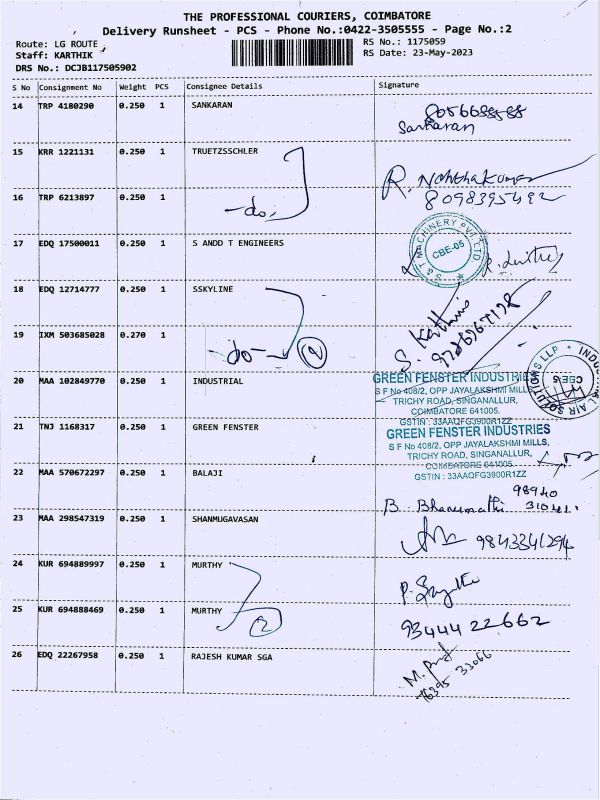 THE PROFESSIONAL COURIERS, COIMBATORE
Delivery Runsheet - PCS - Phone No.:0422-3505555 - Page No.:2
Route: LG ROUTE
Staff: KARTHIK
DRS No.: DCJB117505902
RS No.: 1175059
RS Date: 23-May-2023
S No Consignment No Weight PCS Consignee Details Signature
14 TRP 4180290 0.250 1 SANKARAN
Sankaran
15 KRR 1221131 0.250 1 TRUETZSSCHLER
16 TRP 6213897 0.250 1 -do,
8098395492
17 EDQ 17500011 0.250 1 S ANDD T ENGINEERS
S & T MACHINERY PVT LTD
CBE-05
18 EDQ 12714777 0.250 1 SSKYLINE
19 IXM 503685028 0.270 1 -do- 2
20 MAA 102849770 0.250 1 INDUSTRIAL
GREEN FENSTER INDUSTRIES
S F No 408/2, OPP JAYALAKSHMI MILLS,
TRICHY ROAD, SINGANALLUR,
COIMBATORE 641005.
GSTIN : 33AAQFG3900R1ZZ
INDUSTRIAL AIR SOLUTIONS LLP
21 TNJ 1168317 0.250 1 GREEN FENSTER
GREEN FENSTER INDUSTRIES
S F No 408/2, OPP JAYALAKSHMI MILLS,
TRICHY ROAD, SINGANALLUR,
COIMBATORE 641005
GSTIN : 33AAQFG3900R1ZZ
22 MAA 570672297 0.250 1 BALAJI
98940
B. Bhanumathi 31041.
23 MAA 298547319 0.250 1 SHANMUGAVASAN
9843341294
24 KUR 694889997 0.250 1 MURTHY
25 KUR 694888469 0.250 1 MURTHY 2
9344422662
26 EDQ 22267958 0.250 1 RAJESH KUMAR SGA
76395 33066